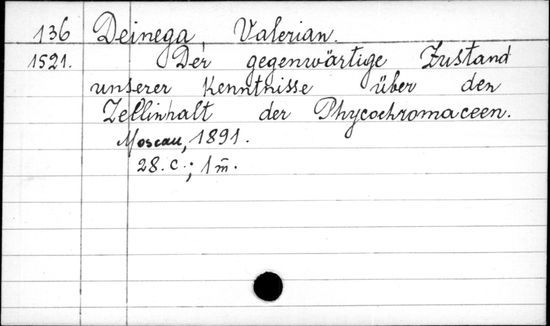 136 Deinega, Valerian.
1521. Der gegenwärtige Zustand
unserer Kenntnisse über den
Zellinhalt der Phycochromaceen.
Moscau, 1891.
28. c.; 1 m̄.